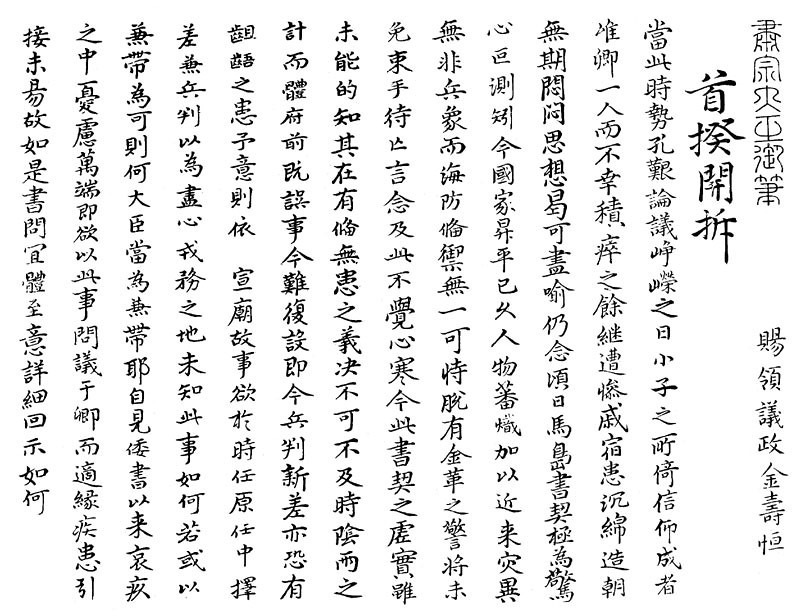 肅宗大王御筆
賜領議政金壽恒
首揆開拆
當此時勢孔艱論議崢嶸之日小子之所倚信仰成者
唯卿一人而不幸積瘁之餘継遭慘戚宿患沉綿造朝
無期悶悶思想曷可盡喻仍念頃日馬島書契極為驚
心叵測矧今國家昇平已久人物蕃熾加以近来灾異
無非兵象而海防俻禦無一可恃脫有金革之警將未
免束手待亡言念及此不覺心寒今此書契之虛實雖
未能的知其在有俻無患之義决不可不及時陰雨之
計而體府前既誤事今難復設即今兵判新差亦恐有
齟齬之患予意則依 宣廟故事欲於時任原任中擇
差兼兵判以為盡心戎務之地未知此事如何若或以
兼帶為可則何大臣當為兼帶耶自見倭書以来哀疚
之中憂慮萬端即欲以此事問議于卿而適緣疾患引
接未易故如是書問冝體至意詳細回示如何